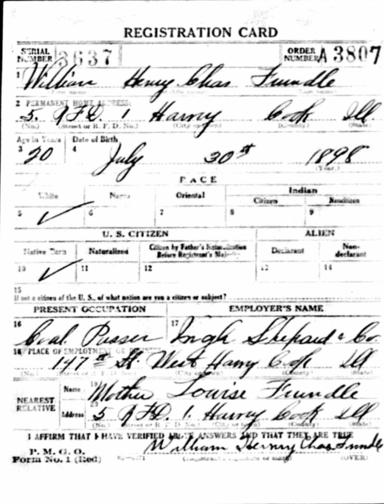 REGISTRATION CARD
SERIAL NUMBER 3637 ORDER NUMBER A3807
1 William Henry Chas Frundle
2 PERMANENT HOME ADDRESS:
5. RFD. 1. Harvey Cook Ill
(No.) (Street or R. F. D. No.) (City or town) (County) (State)
Age in Years Date of Birth
3 20 4 July 30st 1898
(Year.)
RACE
White Negro Oriental Indian
Citizen Noncitizen
5 ✓ 6 7 8 9
U. S. CITIZEN ALIEN
Native Born Naturalized Citizen by Father's Naturalization Before Registrant's Majority Declarant Non-declarant
10 ✓ 11 12 13 14
15
If not a citizen of the U. S., of what nation are you a citizen or subject?
PRESENT OCCUPATION EMPLOYER'S NAME
16 Coal Passer 17 Shepard & Co.
18 PLACE OF EMPLOYMENT
147 St. West Harvey Cook Ill
NEAREST RELATIVE Name 19 Mother Louise Frundle
Address 5 RFD. 1. Harvey Cook Ill
I AFFIRM THAT I HAVE VERIFIED ABOVE ANSWERS AND THAT THEY ARE TRUE
P. M. G. O.
Form No. 1 (Red) William Henry Chas Frundle
(OVER)